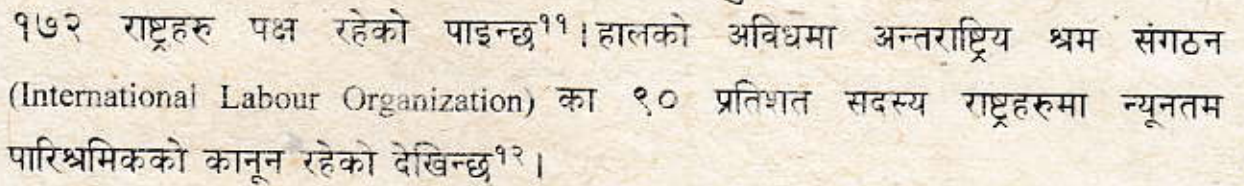 १७२ राष्ट्रहरु पक्ष रहेको पाइन्छ¹¹।हालको अविधमा अन्तराष्ट्रिय श्रम संगठन
(International Labour Organization) का ९० प्रतिशत सदस्य राष्ट्रहरुमा न्यूनतम
पारिश्रमिकको कानून रहेको देखिन्छ¹²।